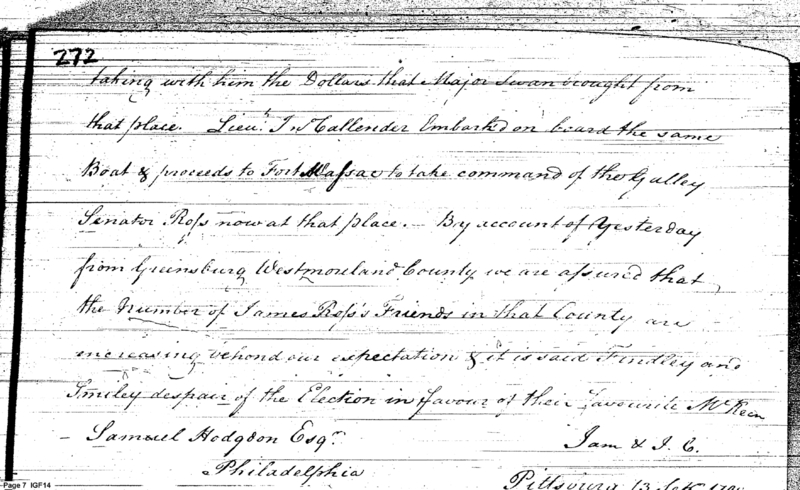 272
taking with him the Dollars that Major Swan brought from
that place. Lieut. Jn Callender Embark'd on board the same
Boat & proceeds to Fort Massac to take command of the Galley
Senator Ross now at that place. — By account of Yesterday
from Greensburg Westmoreland County we are assured that
the Number of James Ross's Friends in that County are
increasing behond our expectation & it is said Findley and
Smiley despair of the Election in favour of their favourite McKean
– Samuel Hodgdon Esqr. Iam & I. C.
Philadelphia
Pittsburg 13
Page 7 IGF14